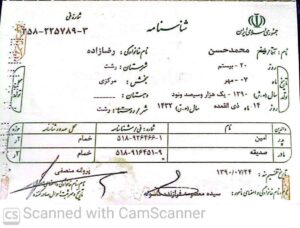 شناسنامه
جمهوری اسلامی ایران
۲۵۸-۲۲۵۷۸۹-۳
نام: محمدحسن
نام خانوادگی: رضازاده
روز ۲۰ - بیستم
شهرستان: رشت
ماه ۷ - مهر
بخش: مرکزی
سال (ه.ش) ۱۳۹۰ - یک هزار و سیصد و نود
دهستان:
روز ۱۴ ماه ذی القعده سال (ه.ق) ۱۴۳۲
شهر/روستا: رشت
نام
محل صدور شناسنامه
پدر امین ۵۱۸-۹۲۶۴۶۶-۱ خمام
مادر صدیقه ۵۱۸-۹۱۶۴۵۱-۹ خمام
۱۳۹۰/۰۷/۲۴
پروانه منصفی
سیده معصومه
CS Scanned with CamScanner